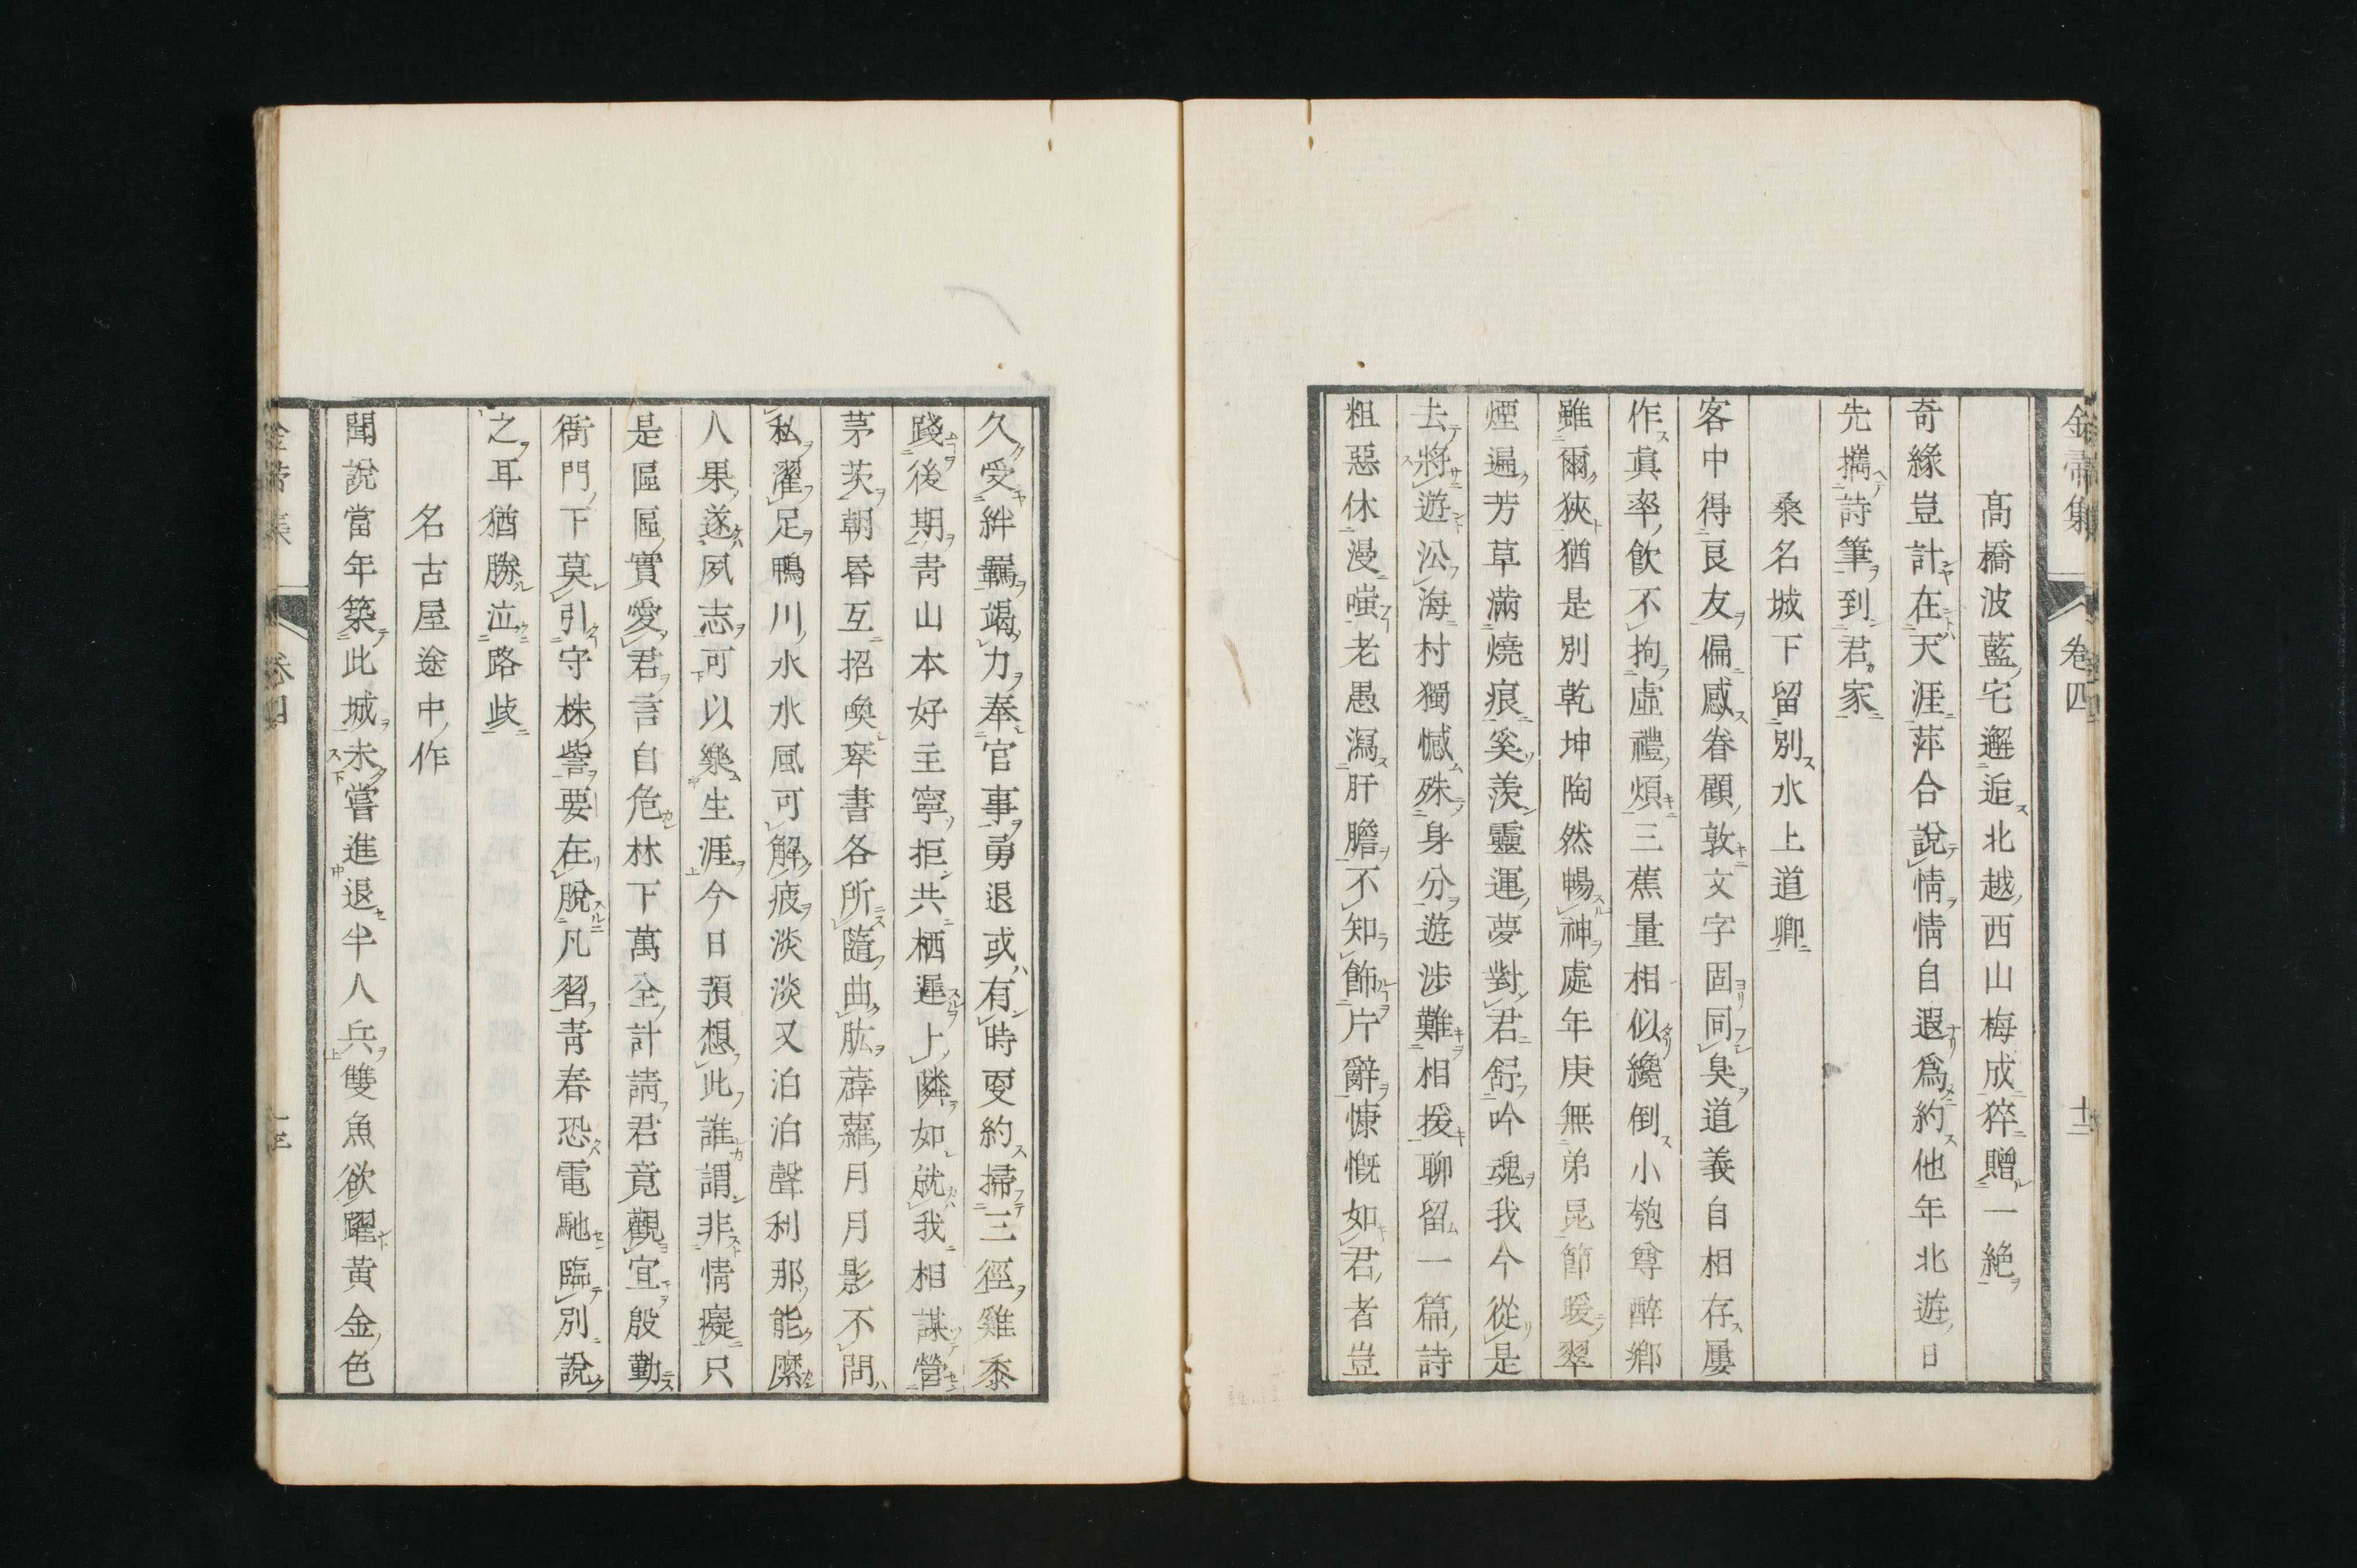 金帚集 卷四 十二
髙橋波藍宅邂逅北越西山梅成猝贈一絶
奇緣豈計在天涯萍合說情情自遐爲約他年北遊日
先攜詩筆到君家
桑名城下留別水上道卿
客中得良友偏感眷顧敦文字固同臭道義自相存屢
作真率飮不拘虛禮煩三蕉量相似纔倒小匏尊醉鄉
雖爾狹猶是別乾坤陶然暢神處年庚無弟昆節暖翠
煙遍芳草滿燒痕奚羨靈運夢對君舒吟魂我今從是
去將遊㳂海村獨憾殊身分遊涉難相援聊留一篇詩
粗惡休漫嗤老愚瀉肝膽不知飾片辭慷慨如君者豈
久受絆羈竭力奉官事勇退或有時要約掃三徑雞黍
踐後期靑山本好主寧拒共栖遲上隣如就我相謀營
茅茨朝昬互招喚琴書各所隨曲肱薜蘿月月影不問
私濯足鴨川水水風可解疲淡淡又泊泊聲利那能縻
人果遂夙志可以樂生涯今日預想此誰謂非情癡只
是區區實愛君言自危林下萬全計請君竟觀宜殷勤
衙門下莫引守株訾要在脫凡習靑春恐電馳臨別說
之耳猶勝泣路歧
名古屋途中作
聞說當年築此城未嘗進退半人兵雙魚欲躍黃金色
金帚集 卷四 十三